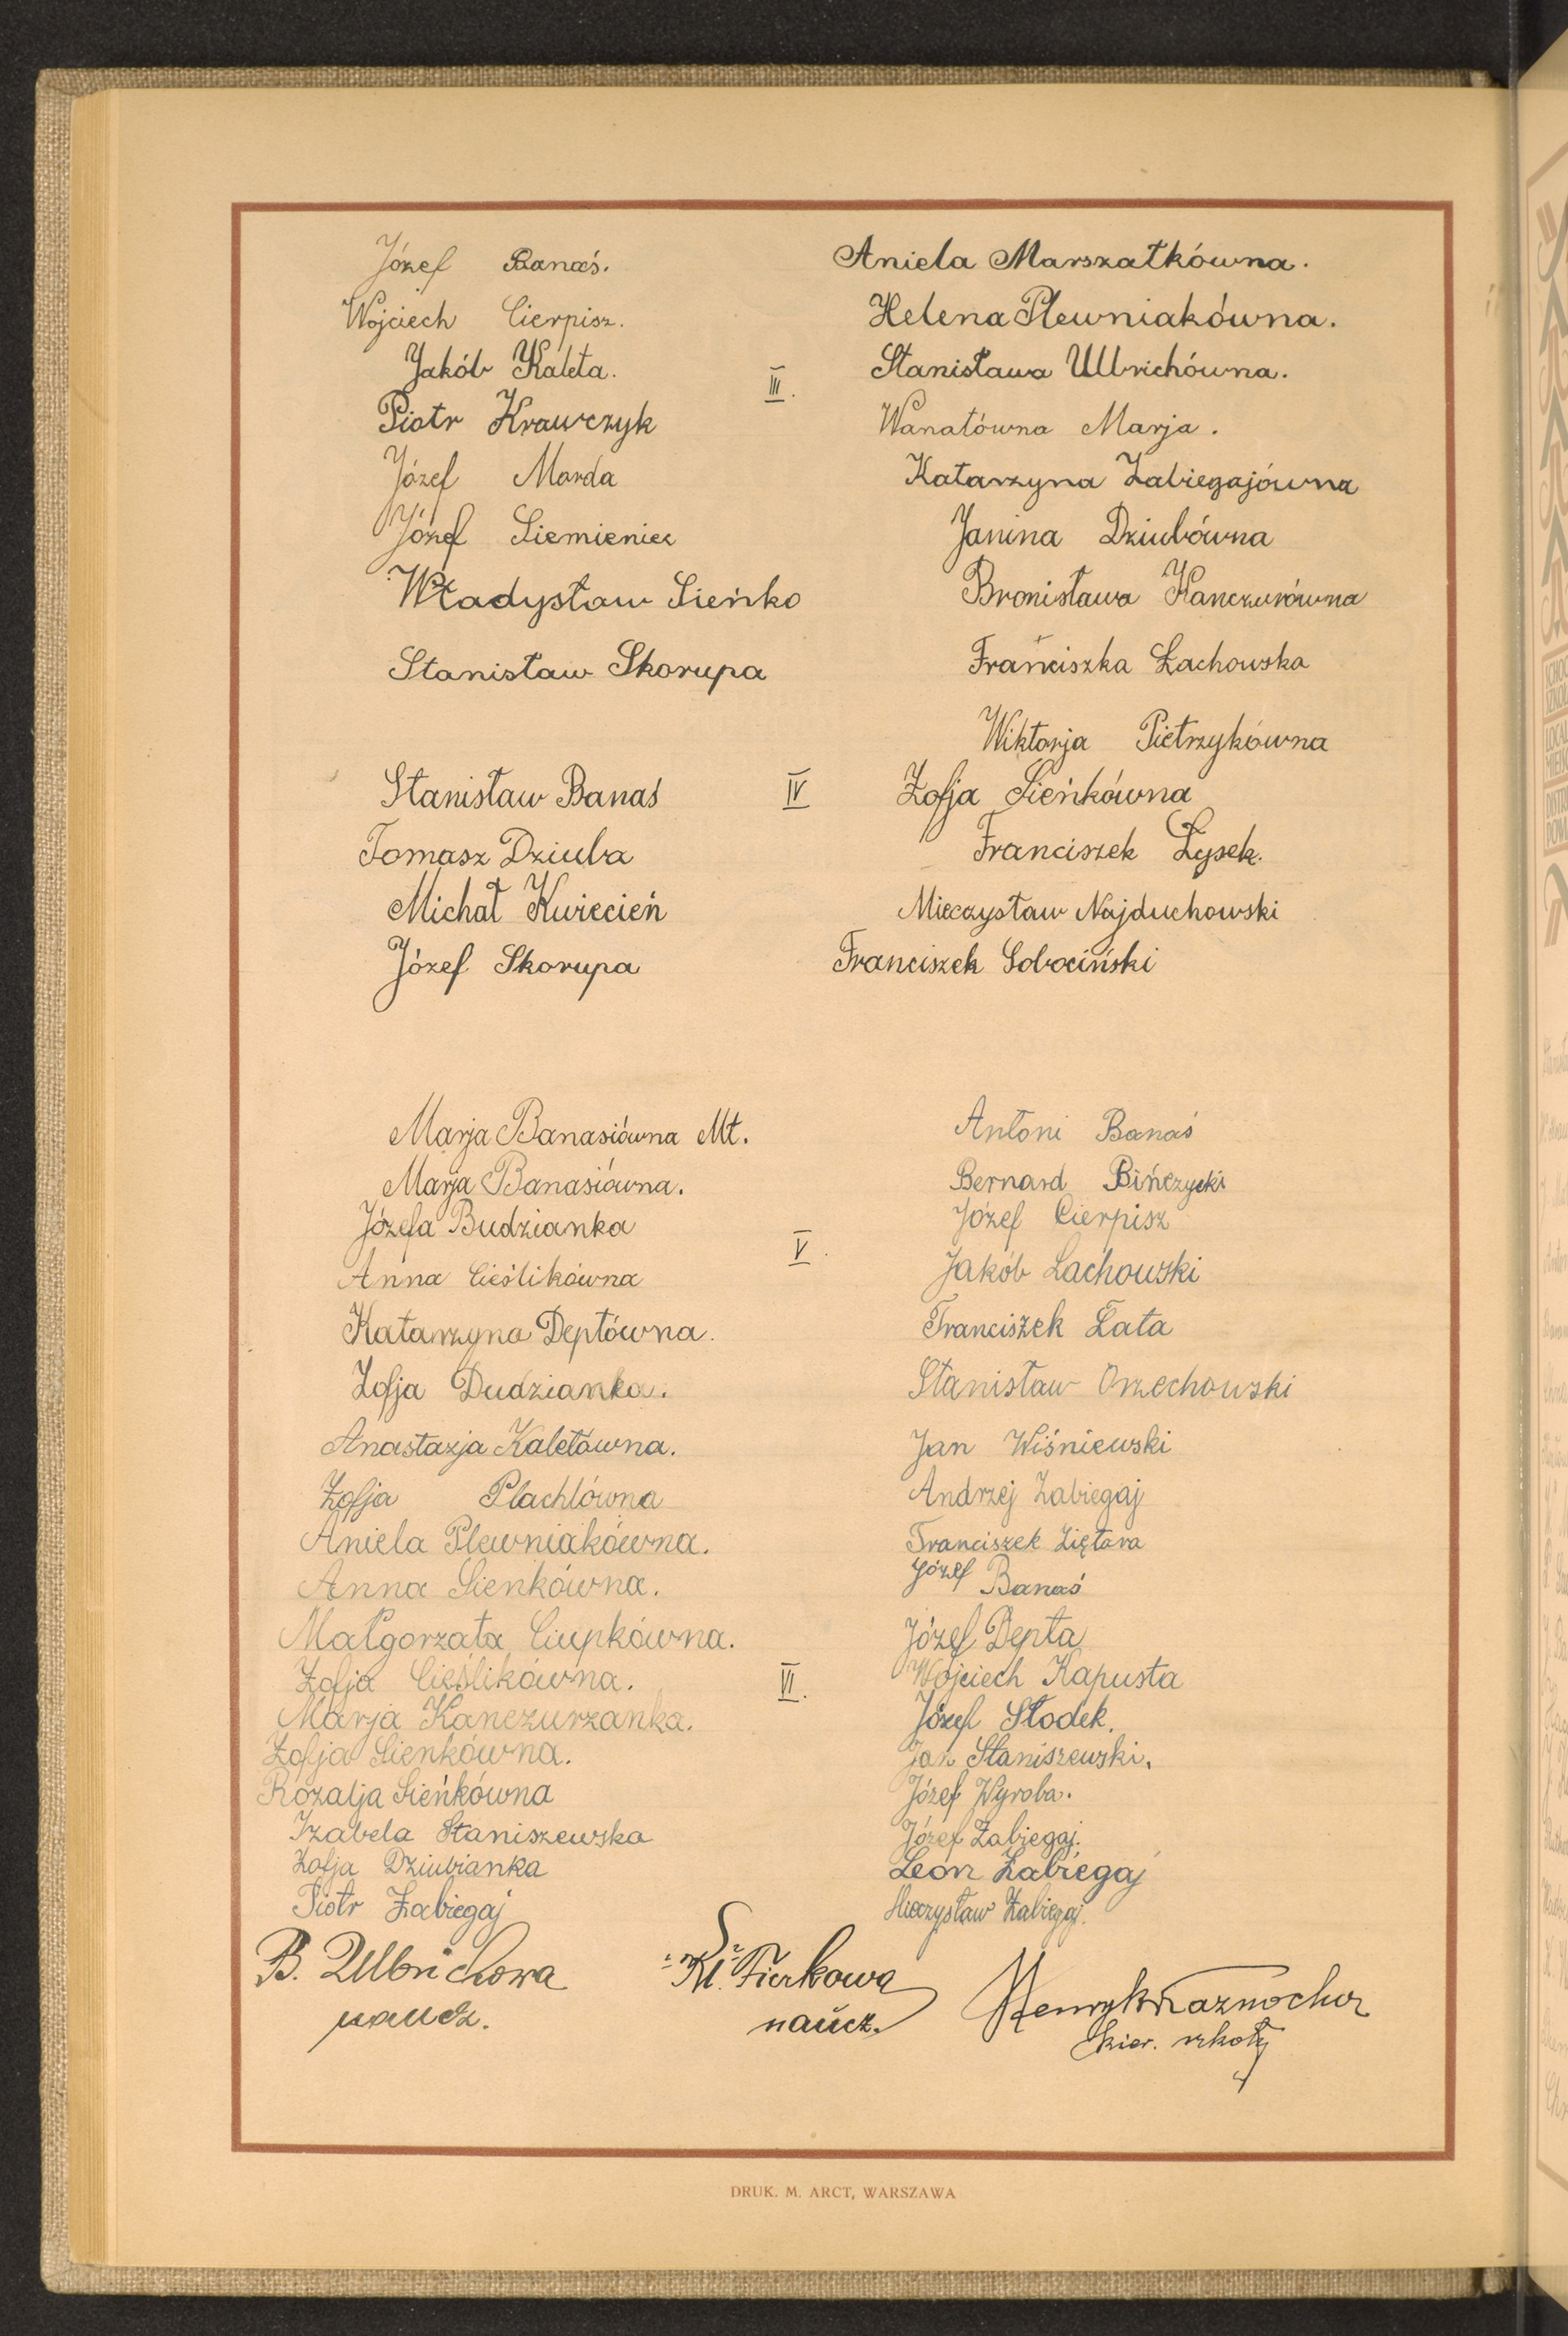 Józef Banaś.
Wojciech Cierpisz.
Jakób Kaleta.
Piotr Krawczyk
Józef Marda
Józef Siemieniec
Władysław Sieńko
Stanisław Skorupa
III.
Aniela Marszałkówna.
Helena Plewniakówna.
Stanisława Ulbrichówna.
Wanatówna Marja.
Katarzyna Zabiegajówna
Janina Dziubówna
Bronisława Kanczurówna
Franciszka Łachowska
Wiktorja Pietrzykówna
Stanisław Banaś
Tomasz Dziuba
Michał Kwiecień
Józef Skorupa
IV
Zofja Sieńkówna
Franciszek Łysek.
Mieczysław Najduchowski
Franciszek Sobociński
Marja Banasiówna Mt.
Marja Banasiówna.
Józefa Budzianka
Anna Cieślikówna
Katarzyna Deptówna.
Zofja Dudzianka.
Anastazja Kaletówna.
Zofja Plachtówna
Aniela Plewniakówna.
Anna Sienkówna.
V.
Antoni Banaś
Bernard Bińczycki
Józef Cierpisz
Jakób Lachowski
Franciszek Łata
Stanisław Orzechowski
Jan Wiśniewski
Andrzej Zabiegaj
Franciszek Ziętara
Józef Banaś
Małgorzata Ciupkówna.
Zofja Cieślikówna.
Marja Kanczurzanka.
Zofja Sienkówna.
Rozalja Sieńkówna
Izabela Staniszewska
Zofja Dziubianka
Piotr Zabiegaj
VI.
Józef Depta
Wojciech Kapusta
Józef Słodek.
Jan Staniszewski.
Józef Wyroba.
Józef Zabiegaj.
Leon Zabiegaj
Mieczysław Zabiegaj.
B. Ulbrichowa
naucz.
Kl. Fierkowa
naucz.
Henryk Kaznocha
kier. szkoły
DRUK. M. ARCT, WARSZAWA